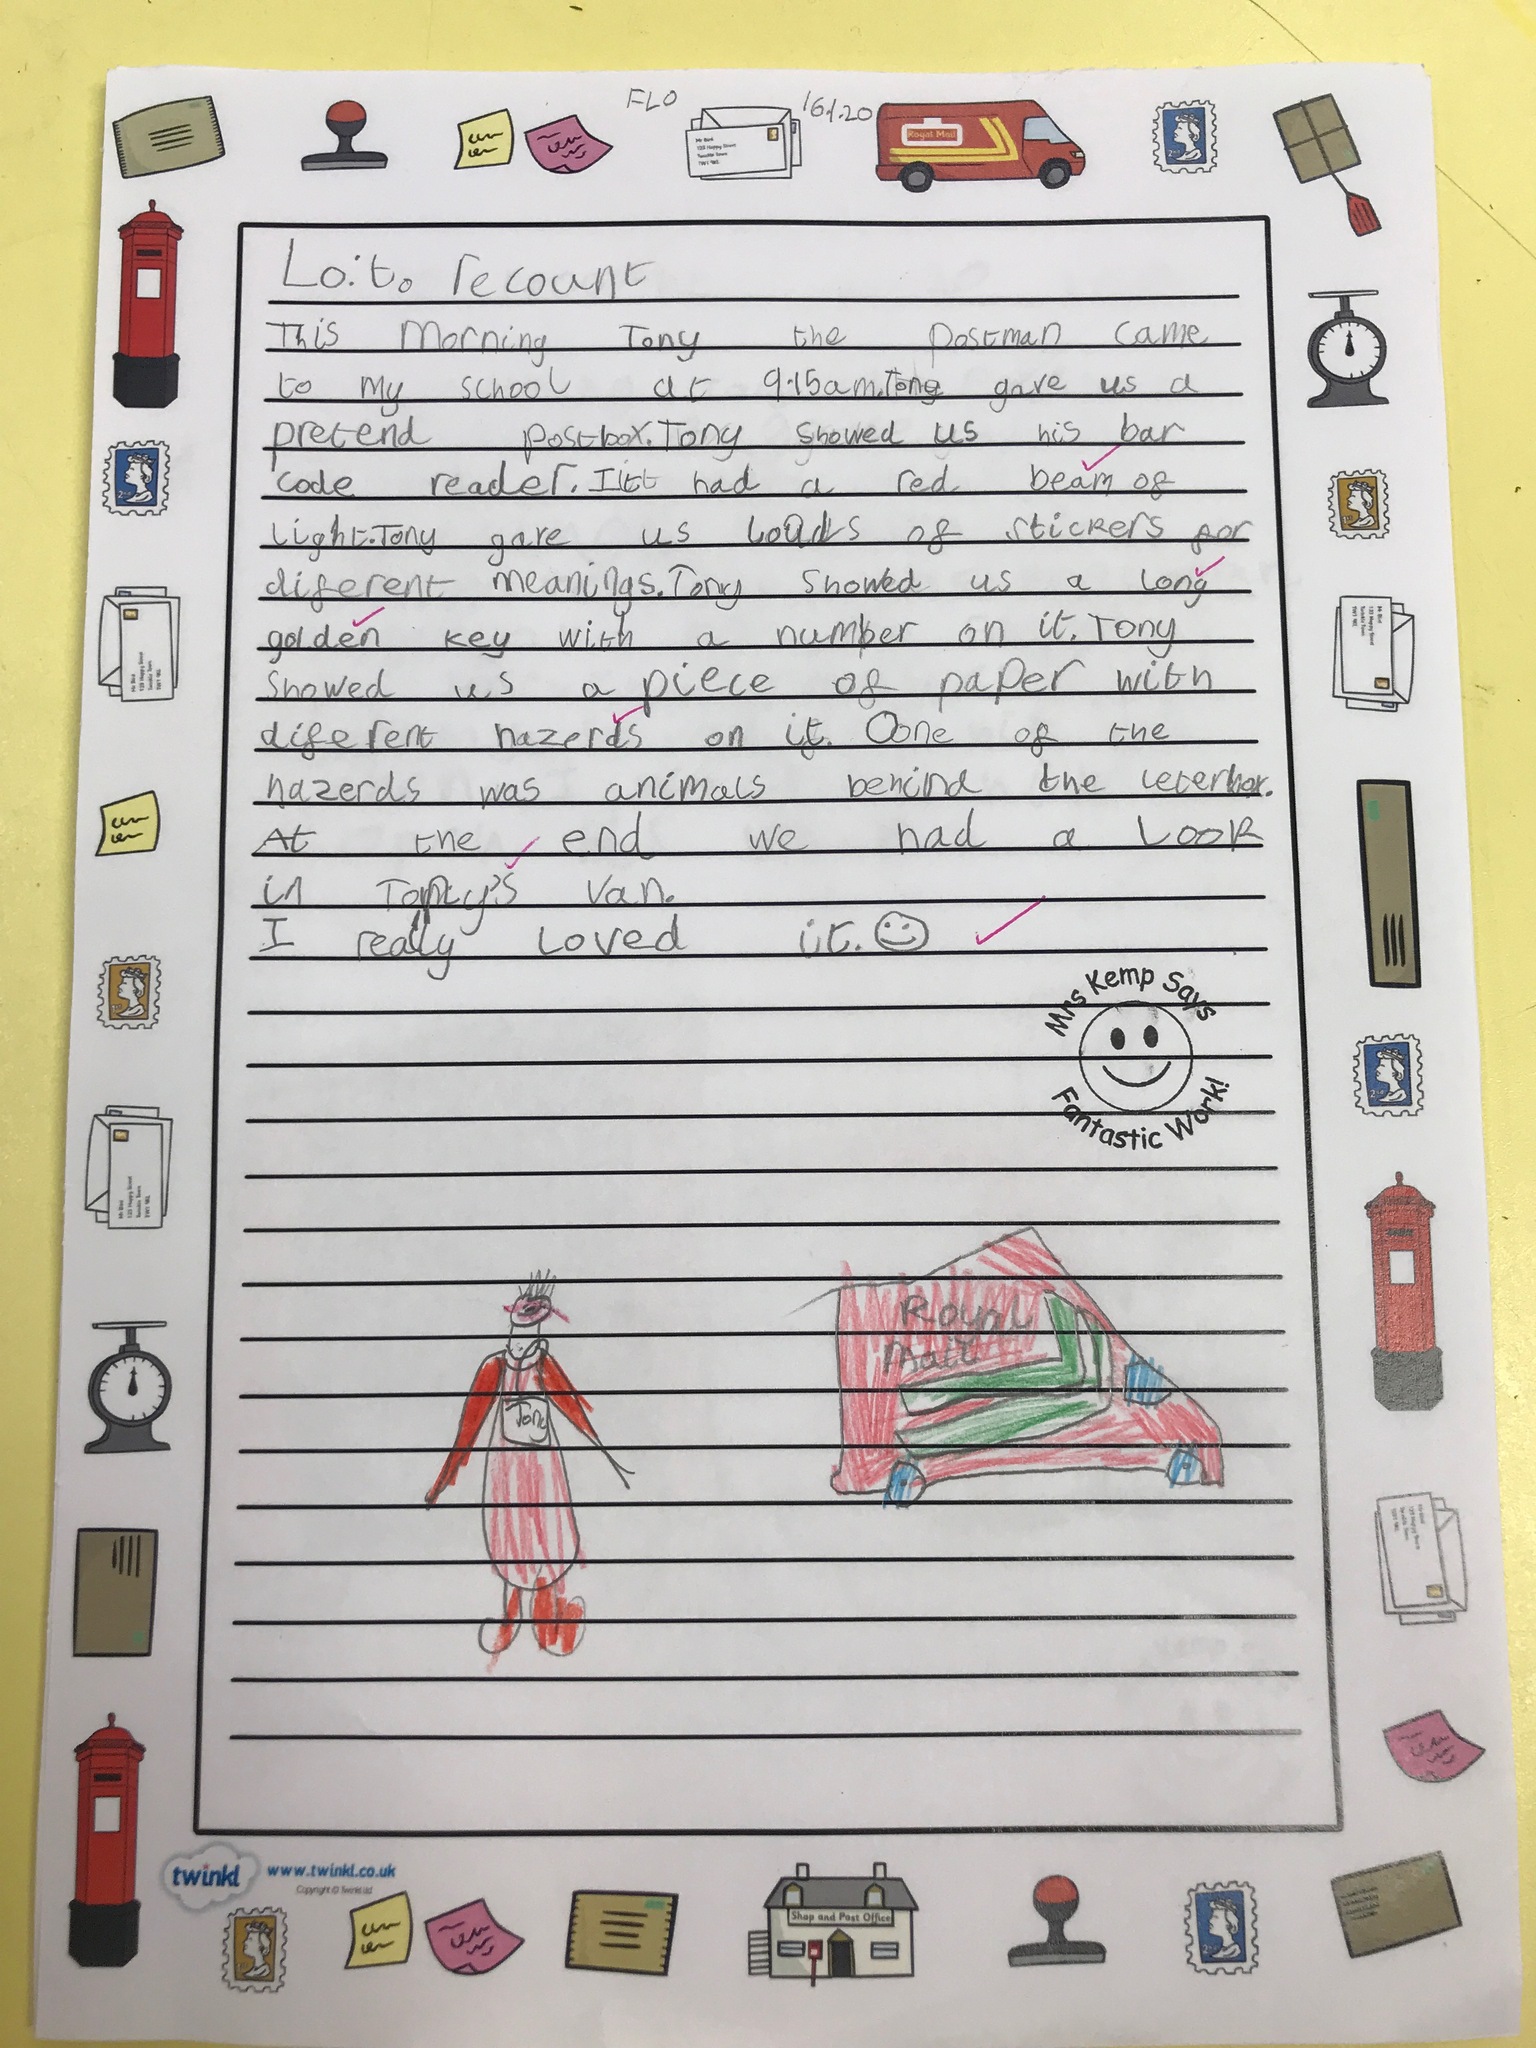 FLO
16.1.20
Royal Mail
L.o.i.to recount
This Morning Tony the postman came
to my school at 9.15am.Tony gave us a
pretend postbox.Tony showed us his bar
code reader. It had a red beam of
light.Tony gave us loads of stickers for
diferent meanings.Tony showed us a long
golden key with a number on it. Tony
showed us a piece of paper with
diferent hazerds on it. One of the
hazerds was animals behind the leterbox.
At the end we had a look
in Tony's van.
I really loved it.
Mrs Kemp Says
Fantastic Work!
Royal
Mail
Tony
twinkl www.twinkl.co.uk
Copyright © Twinkl Ltd
Shop and Post Office